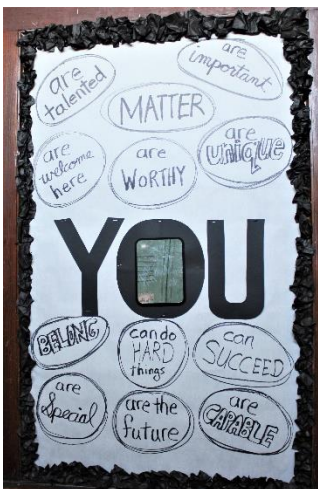 are
talented
are
important
MATTER
are
welcome
here
are
WORTHY
are
unique
YOU
BELONG
can do
HARD
things
can
SUCCEED
are
Special
are the
future
are
CAPABLE